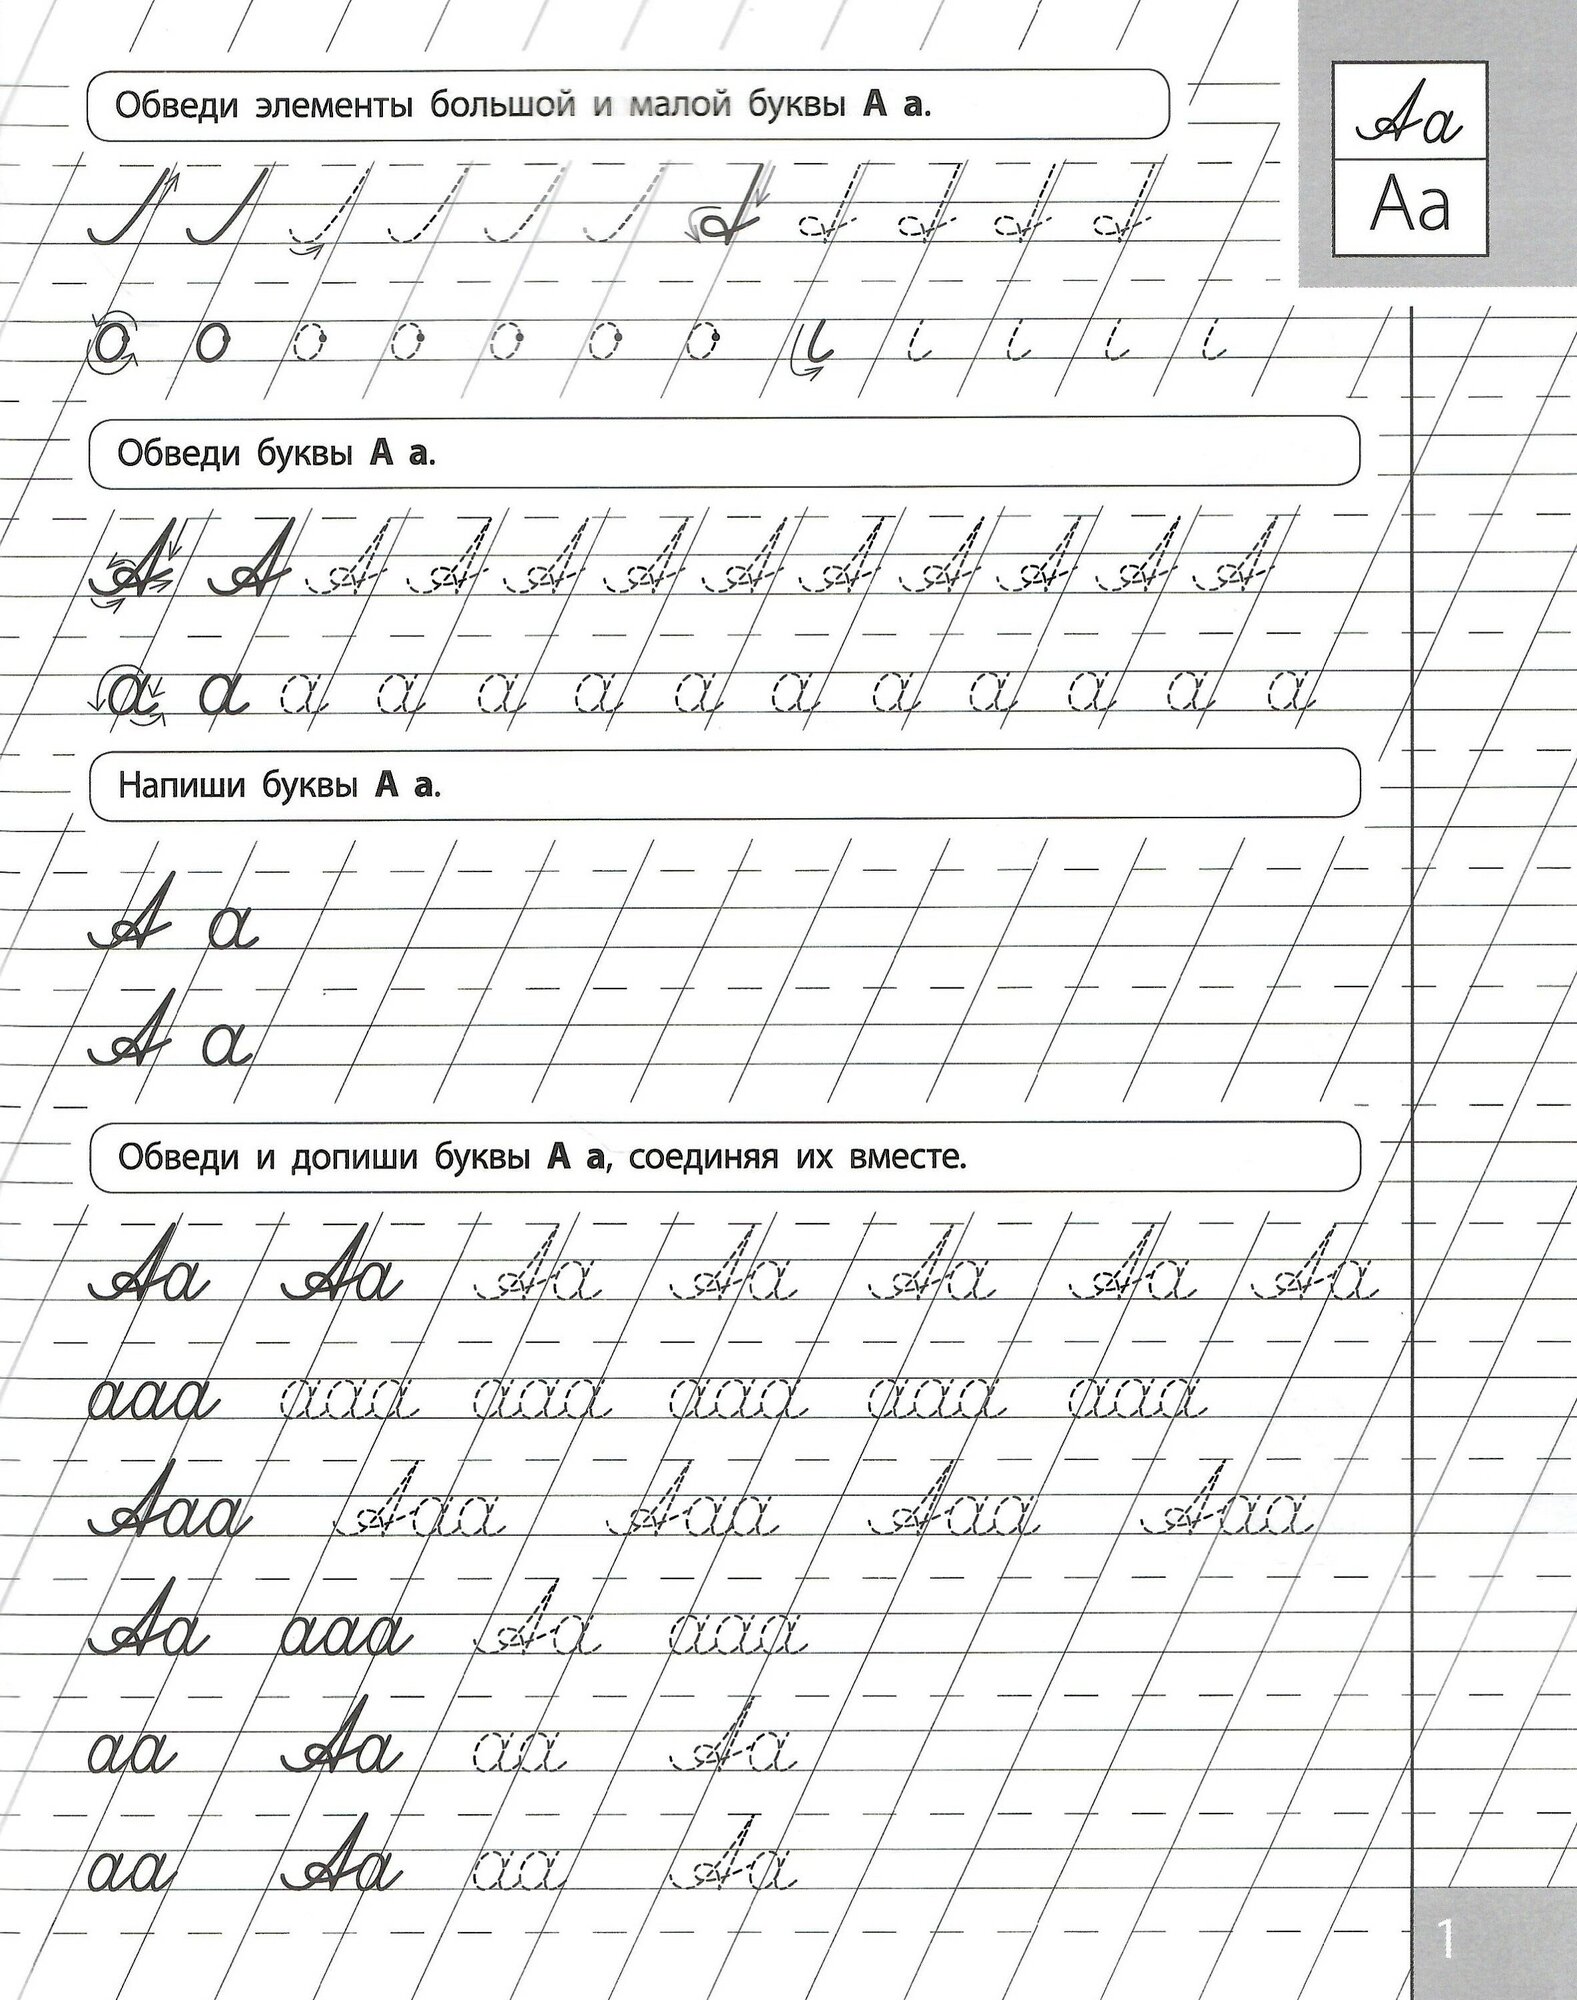 Обведи элементы большой и малой буквы А а.
Аа
Аа
Обведи буквы А а.
А А А А А А А А А А А А
а а а а а а а а а а а а а
Напиши буквы А а.
А а
А а
Обведи и допиши буквы А а, соединяя их вместе.
Аа Аа Аа Аа Аа Аа Аа
ааа ааа ааа ааа ааа ааа
Ааа Ааа Ааа Ааа Ааа
Аа ааа Аа ааа
аа Аа аа Аа
аа Аа аа Аа
1